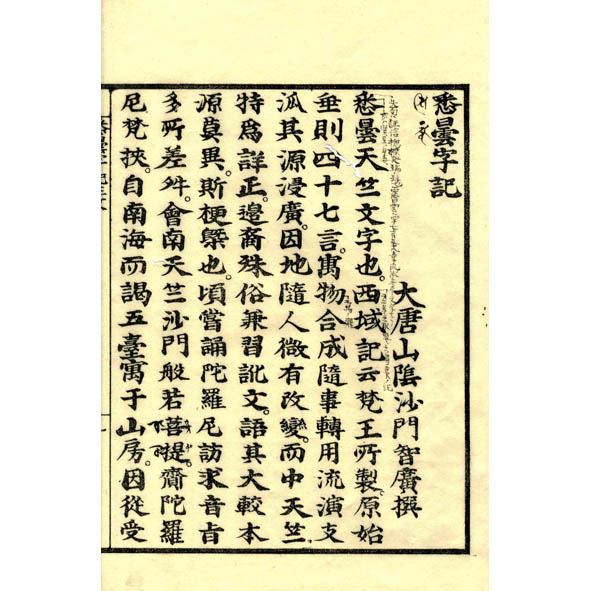 悉曇字記
大唐山陰沙門智廣撰
悉曇天竺文字也。西域記云梵王所製。原始
垂則四十七言。寓物合成隨事轉用流演支
派其源浸廣。因地隨人微有改變。而中天竺
特爲詳正。邊裔殊俗兼習訛文。語其大較本
源莫異。斯梗槩也。頃嘗誦陀羅尼訪求音旨
多所差舛。會南天竺沙門般若菩提。齎陀羅
尼梵挾。自南海而謁五臺寓于山房。因從受
悉曇字記